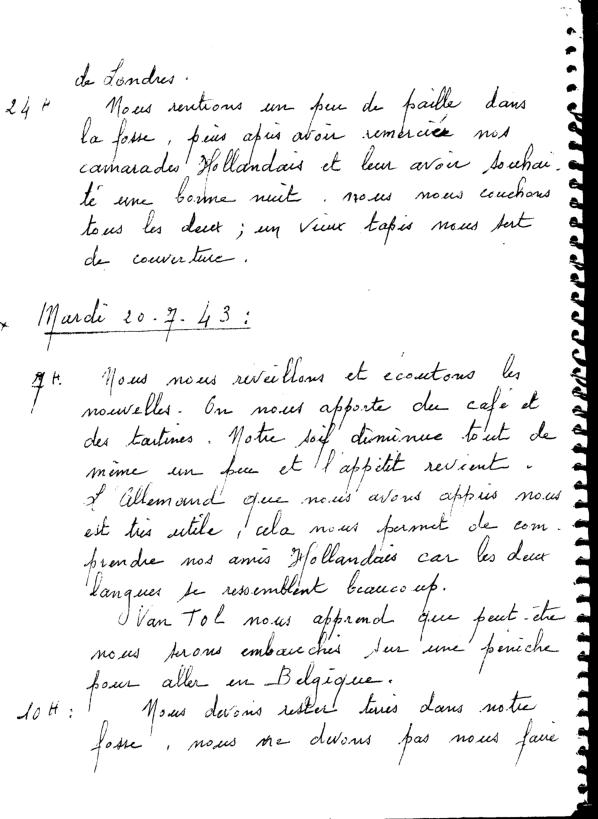 de Londres.
24 H Nous rentrons un peu de paille dans
la fosse, puis après avoir remerciée nos
camarades Hollandais et leur avoir souhai-
té une bonne nuit. nous nous couchons
tous les deux ; un vieux tapis nous sert
de couverture.
x Mardi 20-7-43 :
7 H. Nous nous réveillons et écoutons les
nouvelles. On nous apporte du café et
des tartines. Notre soif diminue tout de
même un peu et l'appétit revient.
L'Allemand que nous avons appris nous
est très utile, cela nous permet de com-
prendre nos amis Hollandais car les deux
langues se ressemblent beaucoup.
Van Tol nous apprend que peut-être
nous serons embauchés sur une péniche
pour aller en Belgique.
10 H : Nous devons rester terrés dans notre
fosse, nous ne devons pas nous faire